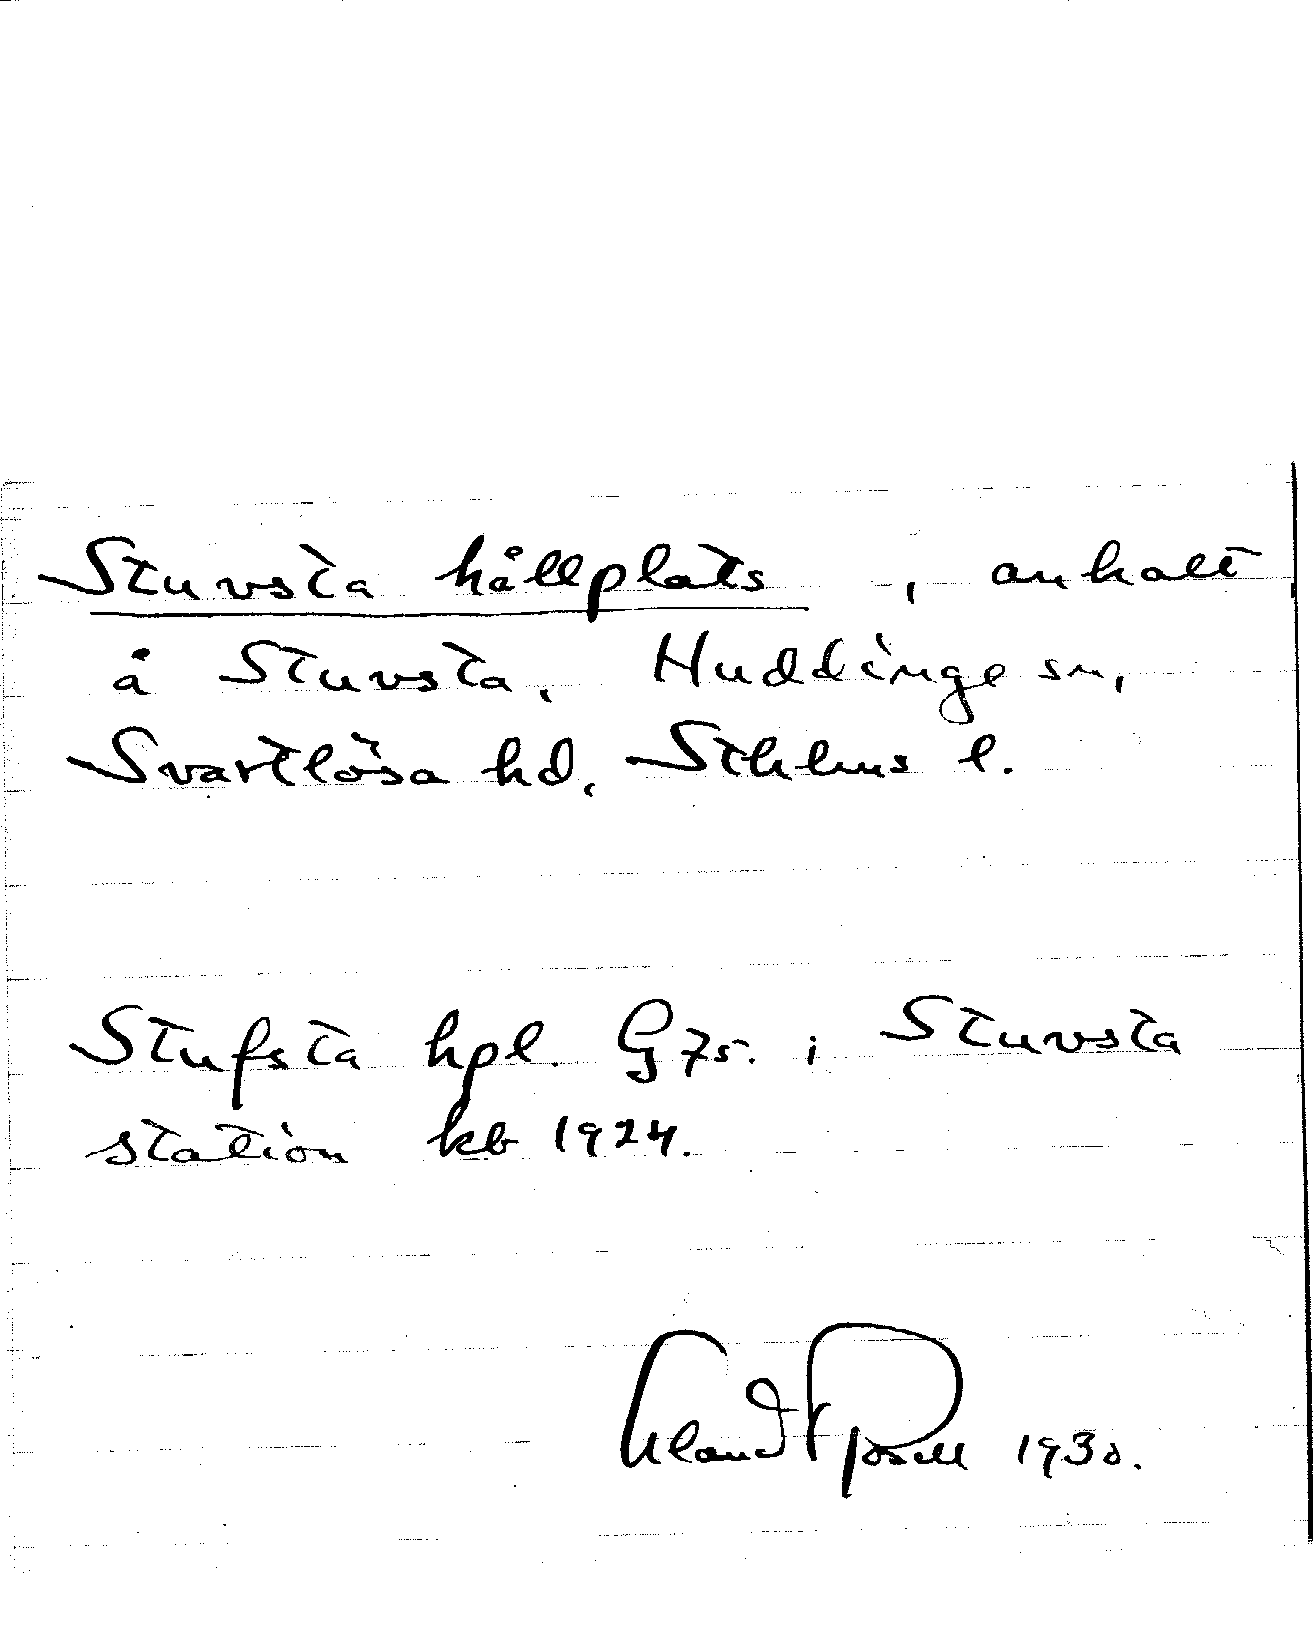 Stuvsta hållplats, anhalt
å Stuvsta, Huddinge sn,
Svartlösa hd, Sthlms l.
Stufsta hpl. G 75. i Stuvsta
station kb 1924.
1930.